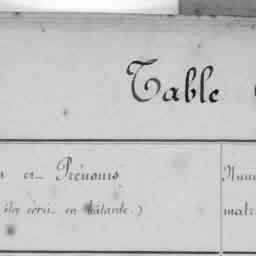 Table
en Prénoms Num
être écrit en bâtarde.) matr